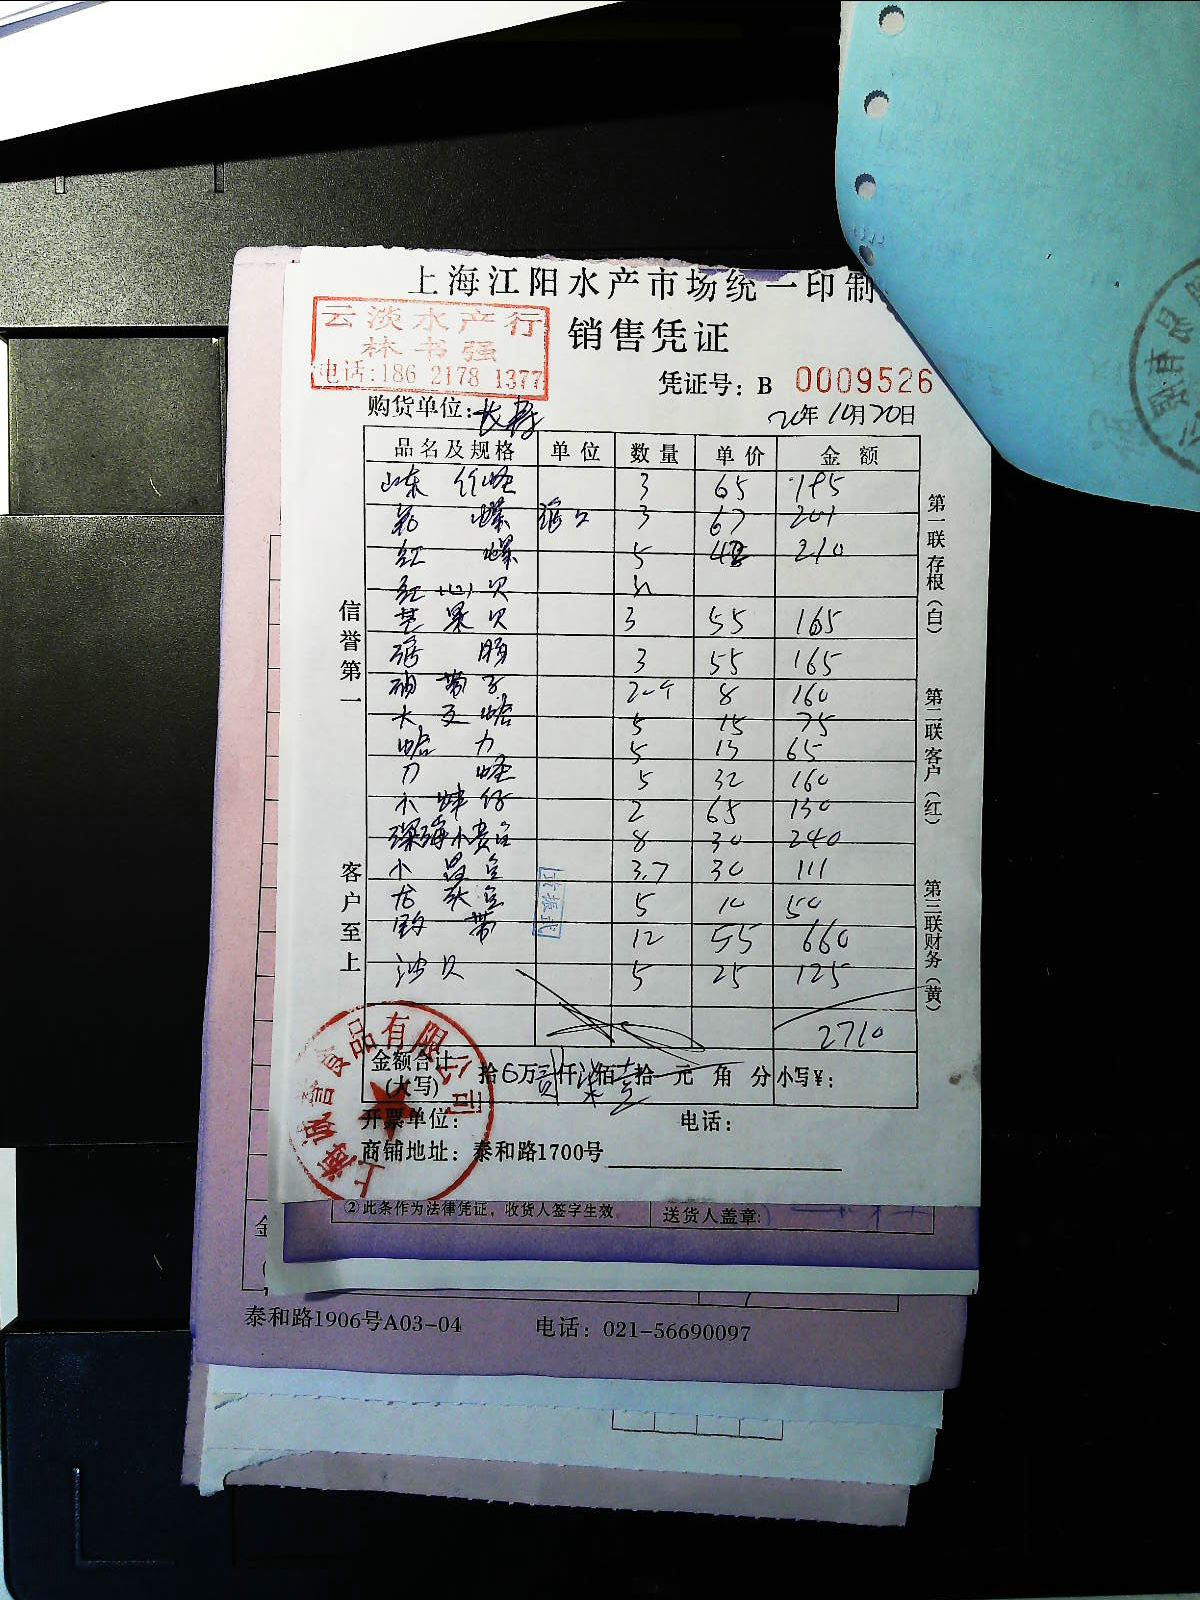 上海江阳水产市场统一印制
云淡水产行
林书强
电话:186 2178 1377
销售凭证
凭证号: B 0009526
购货单位:长寿
20年10月20日
品名及规格 单位 数量 单价 金额
山东 竹蛏 3 65 195
螺 3 67 201
红 螺 5 42 210
红 贝
贝 3 55 165
肠 3 55 165
带子 8 160
大文蛤 5 15 75
蛤 5 13 65
刀 蛏 5 32 160
小 蚌仔 2 65 130
深海小黄鱼 8 30 240
小 鱼 3.7 30 111
龙头鱼 5 10 50
带 12 55 660
沙贝 5 25 125
2710
金额合计(大写) 拾 万贰仟柒佰壹拾 元 角 分 小写¥:
开票单位:
电话:
商铺地址: 泰和路1700号
信誉第一
客户至上
第一联存根(白)
第二联客户(红)
第三联财务(黄)
上海诚 食品有限公司
②此条作为法律凭证,收货人签字生效 送货人盖章:
泰和路1906号A03-04 电话: 021-56690097